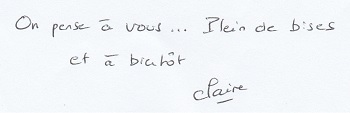 On pense à vous... Plein de bises
et à bientôt
Claire